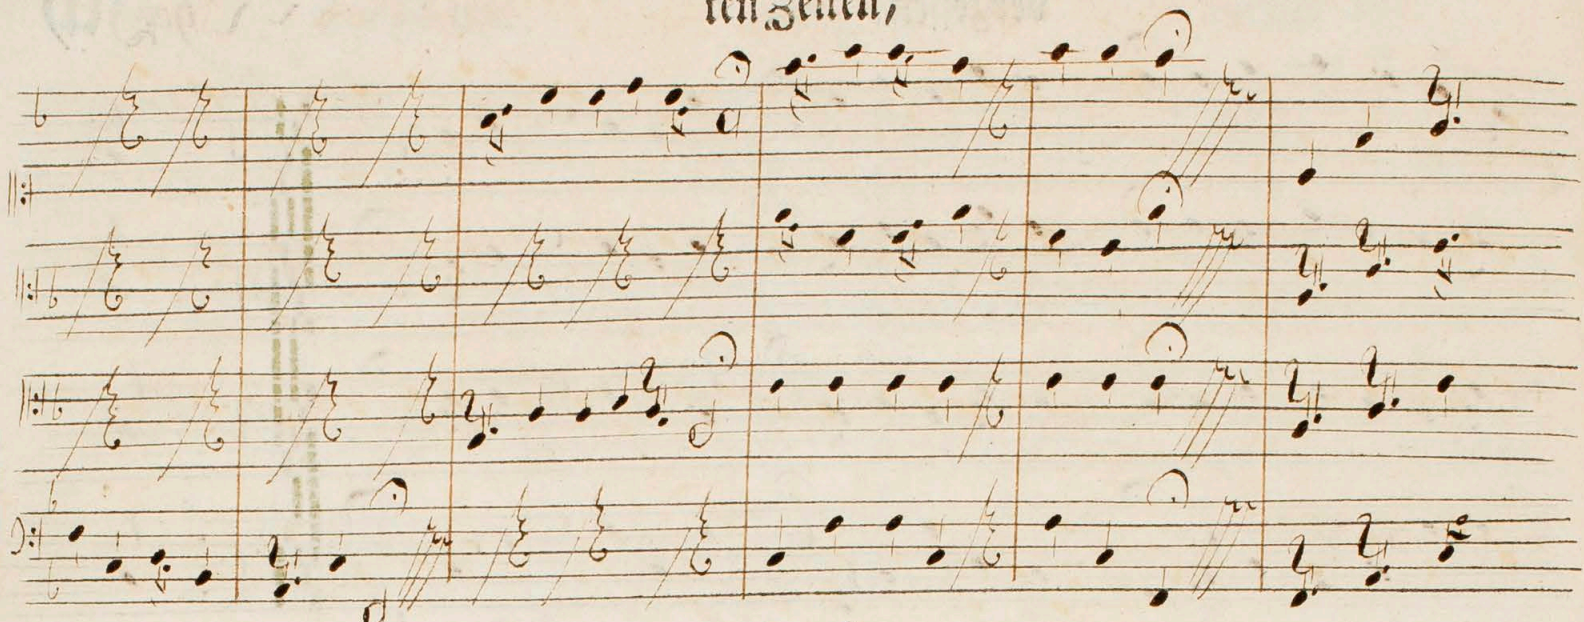 ten Zeiten,